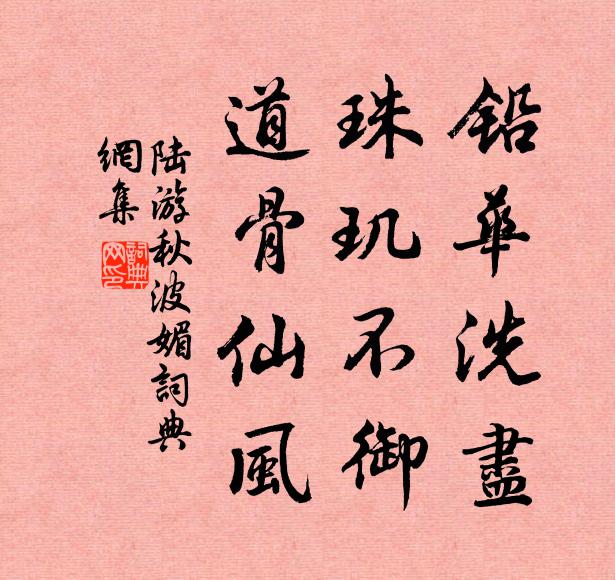 鉛華洗盡
珠玑不御
道骨仙風
陆游秋波媚詞典
網集
詞典
网印